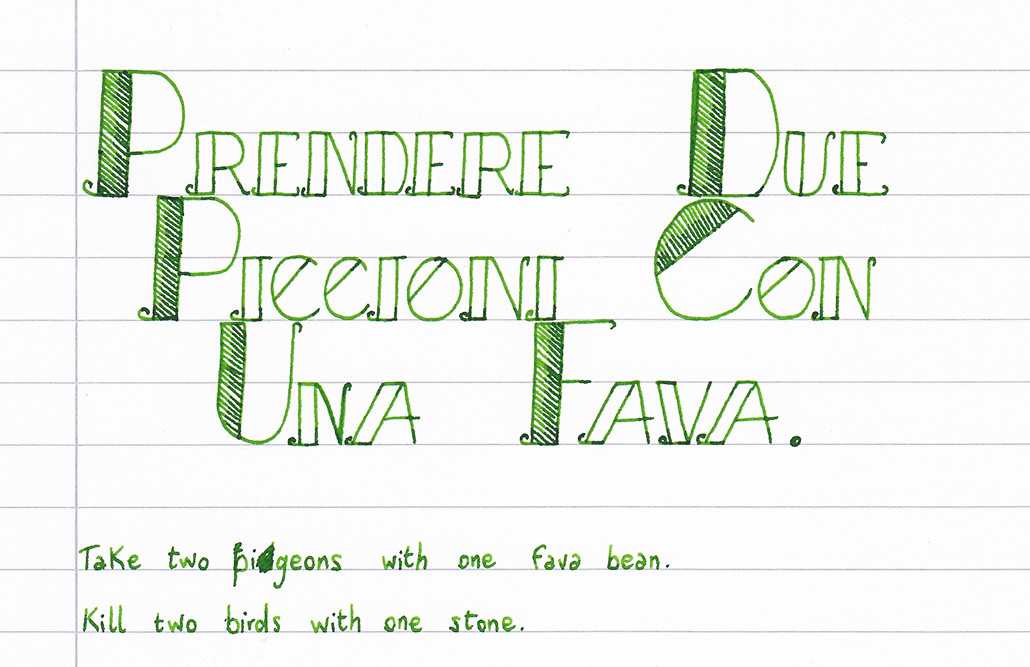 PRENDERE DUE
PICCIONI CON
UNA FAVA.
Take two pidgeons with one fava bean.
Kill two birds with one stone.